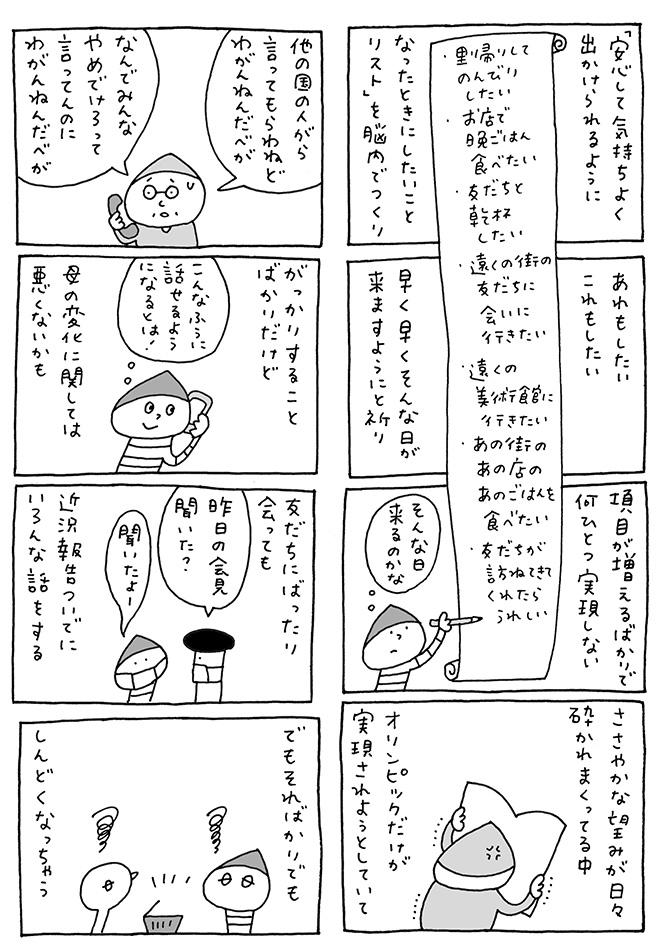 「安心して気持ちよく
出かけられるように
なったときにしたいこと
リスト」を脳内でつくり
・里帰りして
のんびり
したい
・お店で
晩ごはん
食べたい
・友だちと
乾杯
したい
・遠くの街の
友だちに
会いに
行きたい
・遠くの
美術館に
行きたい
・あの街の
あの店の
あのごはんを
食べたい
・友だちが
訪ねてきて
くれたら
うれしい
あれもしたい
これもしたい
早く早くそんな日が
来ますようにと祈り
項目が増えるばかりで
何ひとつ実現しない
そんな日
来るのかな
ささやかな望みが日々
砕かれまくってる中
オリンピックだけが
実現されようとしていて
他の国の人がら
言ってもらわねど
わがんねんだべが
なんでみんな
やめでけろって
言ってんのに
わがんねんだべが
がっかりすること
ばかりだけど
こんなふうに
話せるよう
になるとは!
母の変化に関しては
悪くないかも
友だちにばったり
会っても
昨日の会見
聞いた?
聞いたよー
近況報告ついでに
いろんな話をする
でもそればかりでも
しんどくなっちゃう